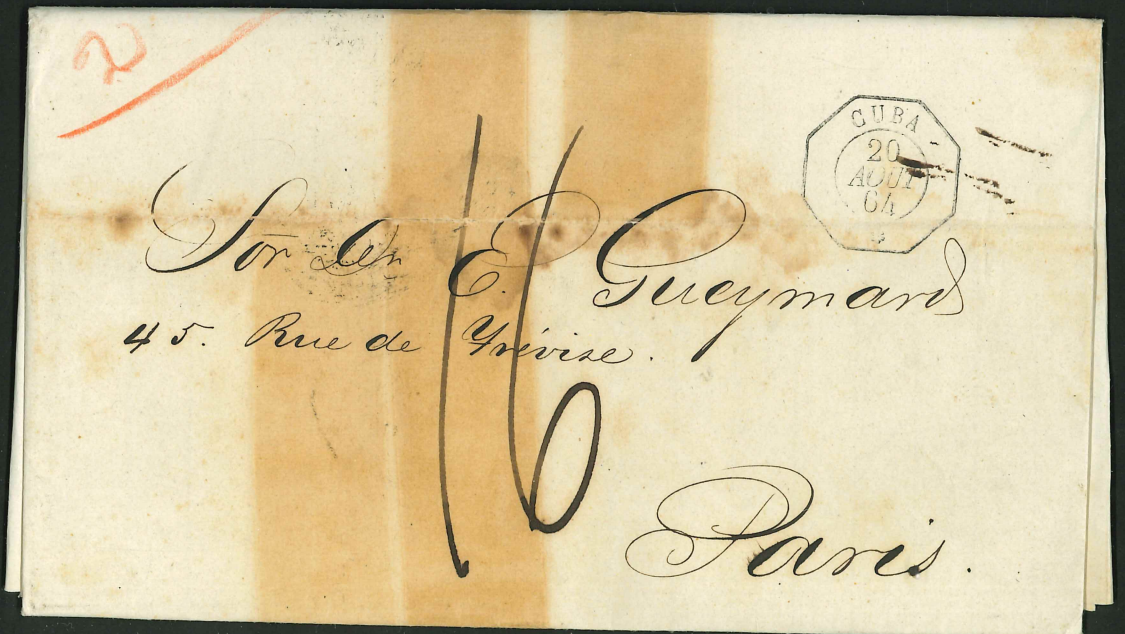 2
CUBA
20
AOUT
64
Sor Dn E. Gueymard
16
45. Rue de Trévise.
Paris.